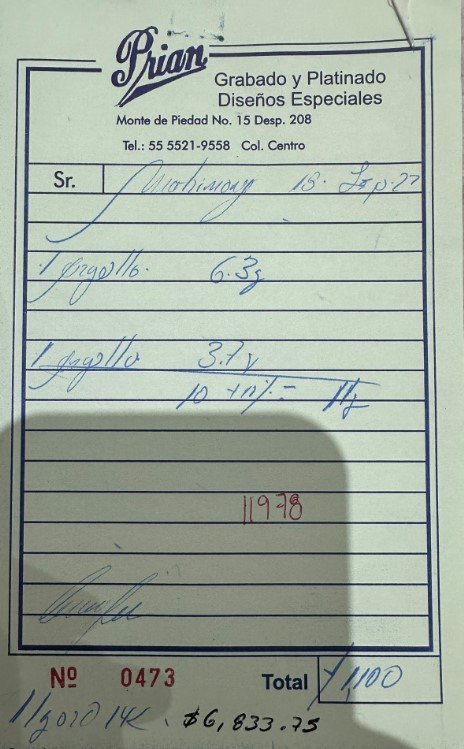 Prian
Grabado y Platinado
Diseños Especiales
Monte de Piedad No. 15 Desp. 208
Tel.: 55 5521-9558 Col. Centro
Sr. 13.
1 6.3g
1 3.7g
10 + = 11g
11978
Nº 0473 Total 1,100
11g oro 14K. $6,833.75